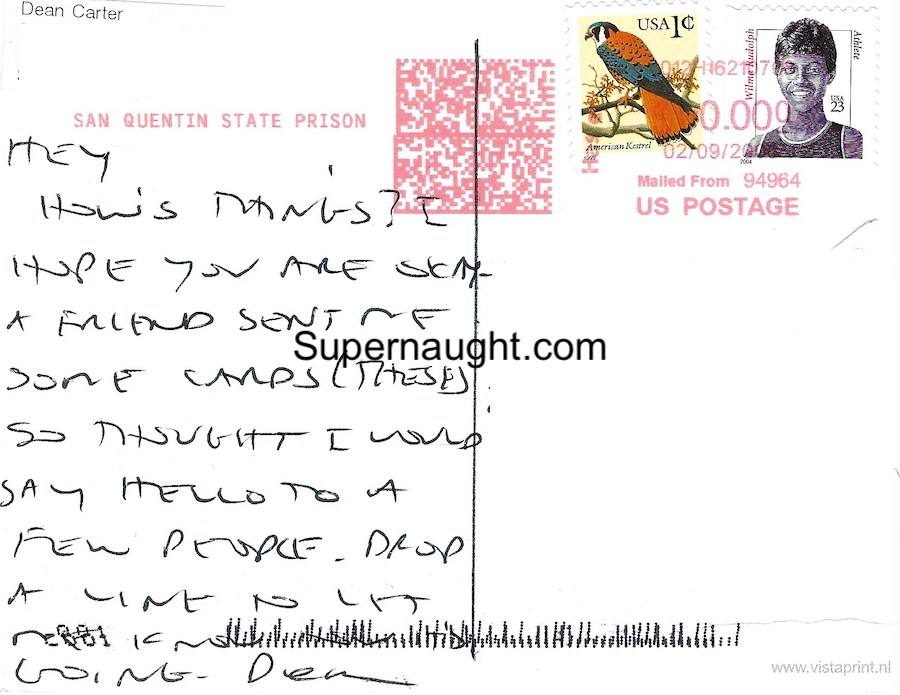 Dean Carter
USA 1¢
American Kestrel
Wilma Rudolph
Athlete
USA
23
2004
SAN QUENTIN STATE PRISON
02/09/2
Mailed From 94964
US POSTAGE
HEY
HOW'S THINGS? I
HOPE YOU ARE OKAY.
A FRIEND SENT ME
SOME CARDS (THESE)
SO THOUGHT I WOULD
SAY HELLO TO A
FEW PEOPLE. DROP
A LINE TO LET
ME KNOW
GOING. Dean
Supernaught.com
www.vistaprint.nl